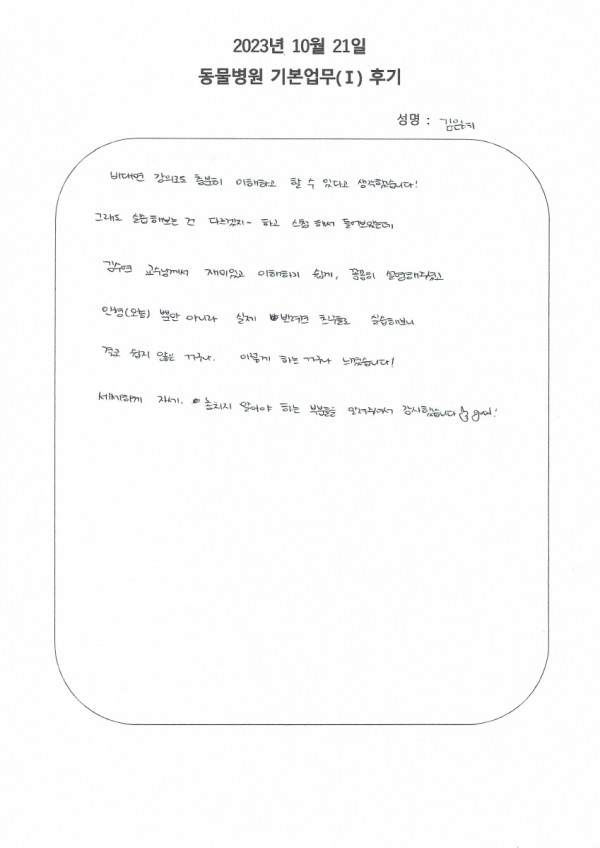 2023년 10월 21일
동물병원 기본업무(Ⅰ) 후기
성명 : 김
비대면 강의로도 충분히 이해하고 할 수 있다고 생각했습니다!
그래도 실습해보는 건 다르겠지~ 하고 신청 해서 들어보았는데
김수연 교수님께서 재미있고 이해하기 쉽게, 꼼꼼히 설명해주셨고
인형(모형) 뿐만 아니라 실제 반려견 친구들로 실습해보니
결코 쉽지 않은 거구나. 이렇게 하는 거구나 느꼈습니다!
세세하게 자세. 놓치지 말아야 하는 부분들을 알려주셔서 감사했습니다 good!